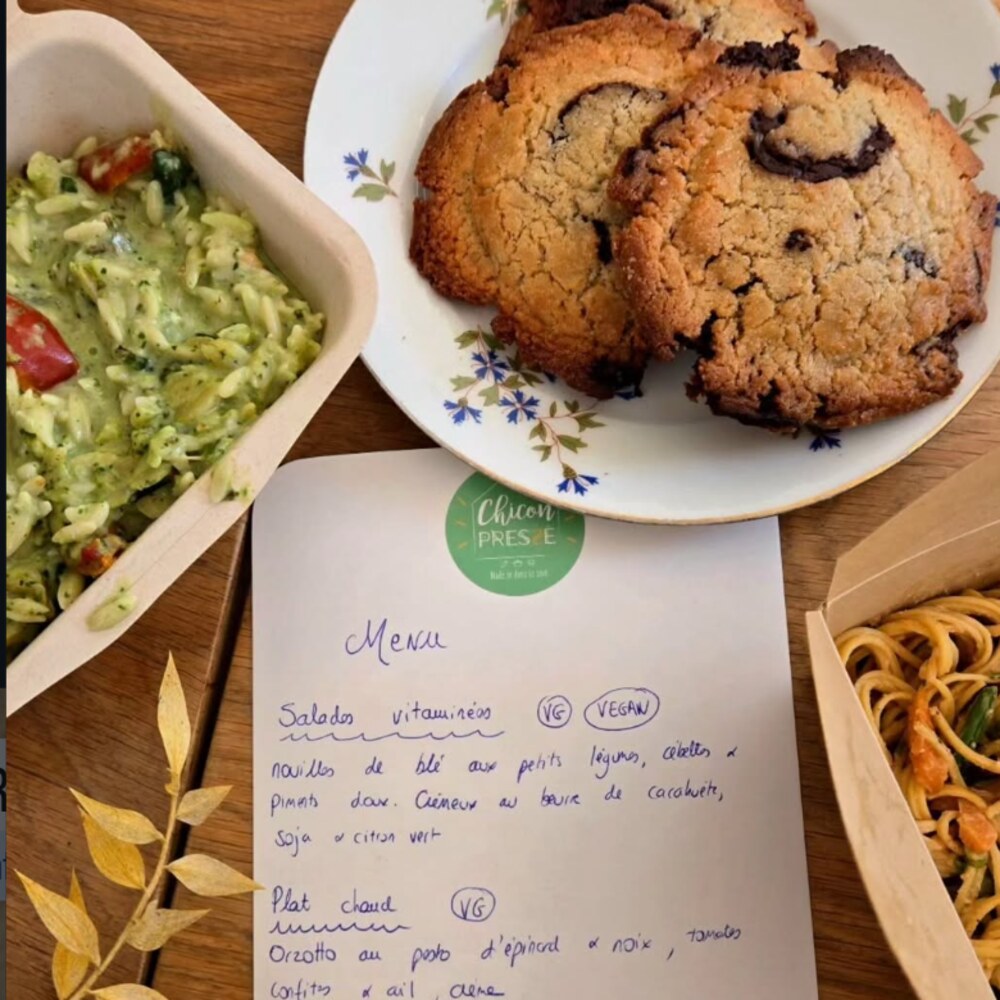 Chicon
PRESSE
Menu
Salades vitaminées VG VEGAN
nouilles de blé aux petits légumes, cébettes &
piments doux. Crémeux au beurre de cacahuète,
soja & citron vert
Plat chaud VG
Orzotto au pesto d'épinard & noix, tomates
confites & ail, crème